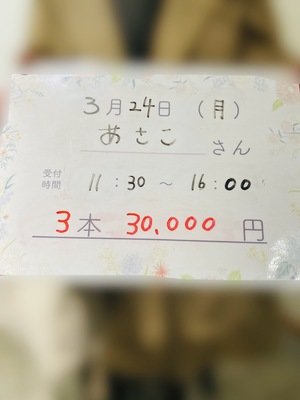 3月24日（月）
あさこ さん
受付時間 11:30 ～ 16:00
3本 30.000 円